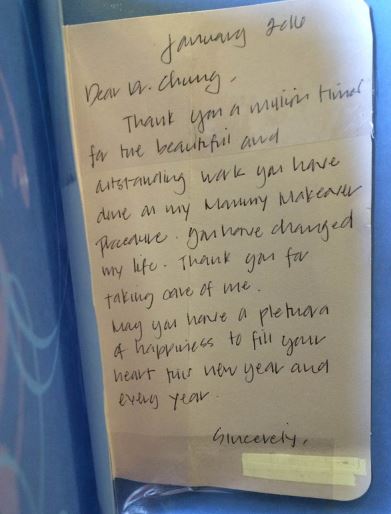 January 2016
Dear Dr. Chung,
Thank you a million times
for the beautiful and
outstanding work you have
done on my Mommy Makeover
Procedure. You have changed
my life. Thank you for
taking care of me.
May you have a plethora
of happiness to fill your
heart this new year and
every year.
Sincerely,